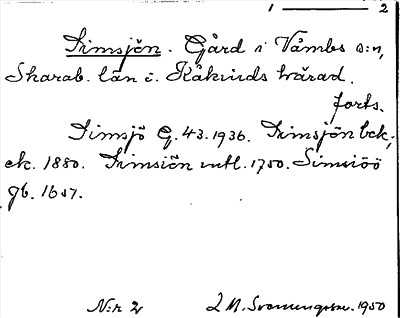 1 ——— 2
Simsjön. Gård i Våmbs s:n,
Skarab. län i. Kåkinds härad.
forts.
Simsjö G. 43. 1936. Simsjön bek;
ek. 1880. Simsiön mtl. 1750. Simsiöö
gb. 1657.
N:r 2 1950